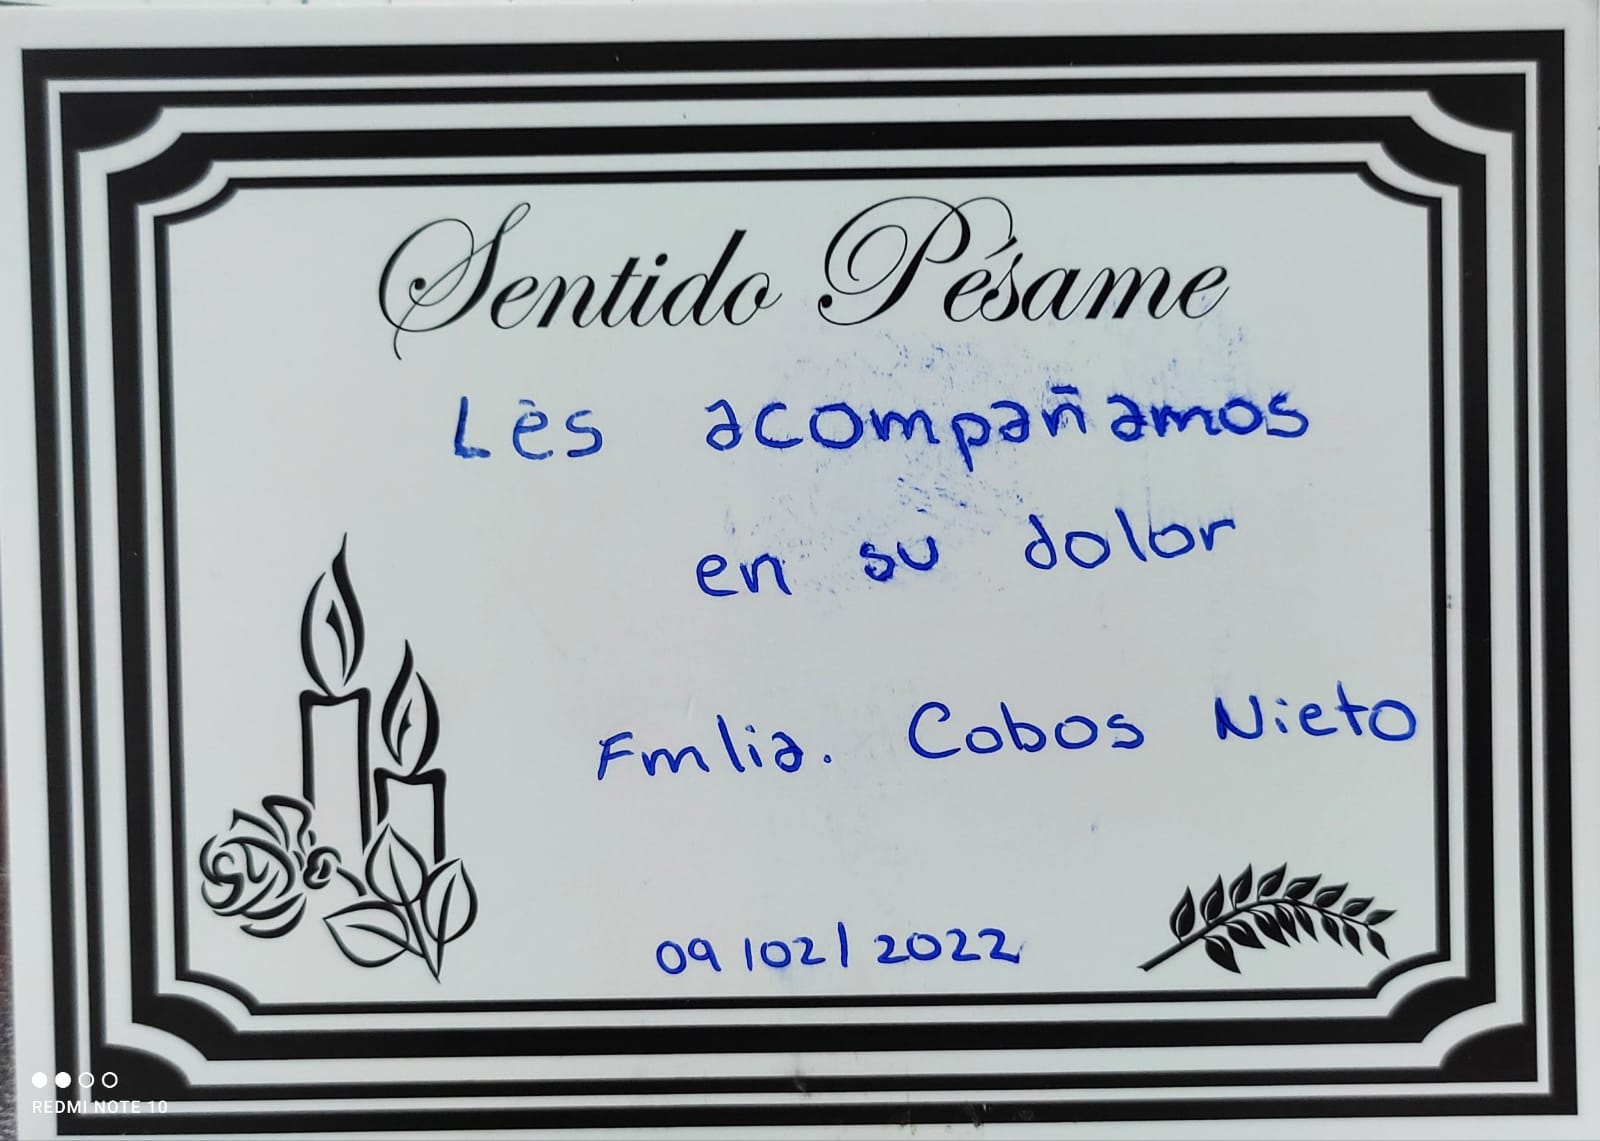 Sentido Pésame
Les acompañamos
en su dolor
Fmlia. Cobos Nieto
09/02/2022
REDMI NOTE 10